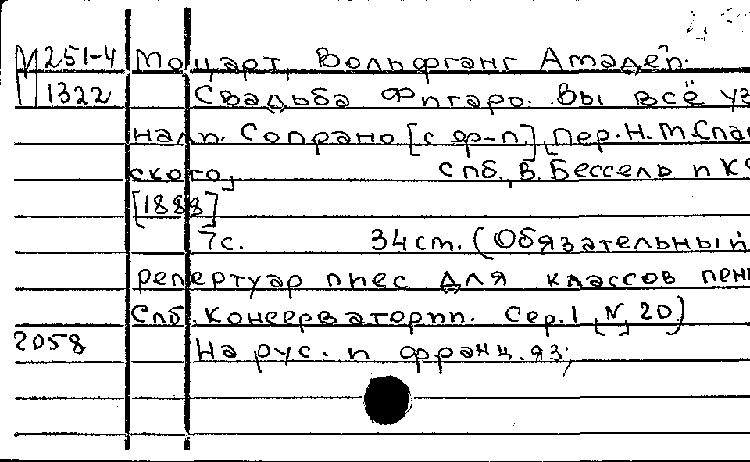 М 251-4 Моцарт, Вольфганг Амадей.
1322 Свадьба Фигаро. Вы всё уз
нали. Сопрано [с ф-п.], Пер. Н. М. Спас
ского, Спб., В. Бессель и К
[1888]
7 с. 34 cm. (Обязательный
репертуар пиес для классов пени
Спб. Консерватории. Сер. 1 [,] № 20)
2058 На рус. и франц. яз.